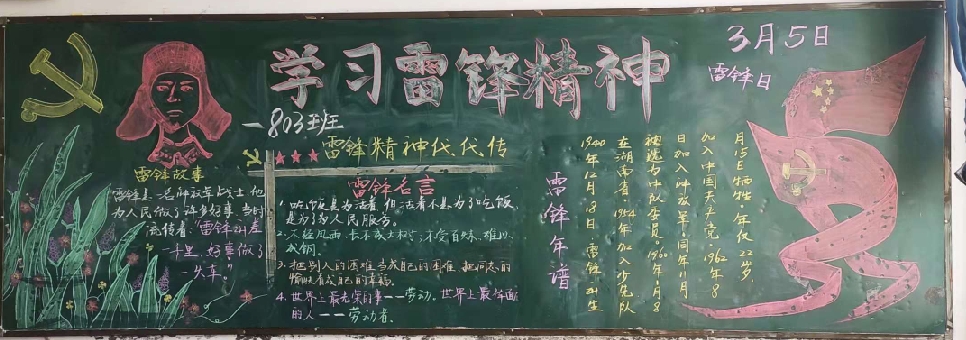 学习雷锋精神
3月5日
雷锋日
—803班
雷锋精神代代传
雷锋故事
雷锋是一名解放军战士他
为人民做了许多好事，当时
流传着，雷锋出差
一千里，好事做了
一火车”
雷锋名言
1.吃饭是为活着，但活着不是为了吃饭
是为了为人民服务。
2.不经风雨，长不成大树，不受百炼，难以
成钢。
3.把别人的困难当成自己的困难，把同志的
愉快看成自己的幸福。
4.世界上最光荣的事——劳动。世界上最体面
的人——劳动者。
雷锋年谱
1940年12月18日，雷锋出生
在湖南省，1954年加入少先队
被选为中队委员。1960年1月8
日加入解放军，同年11月
加入中国共产党。1962年8
月15日牺牲，年仅22岁